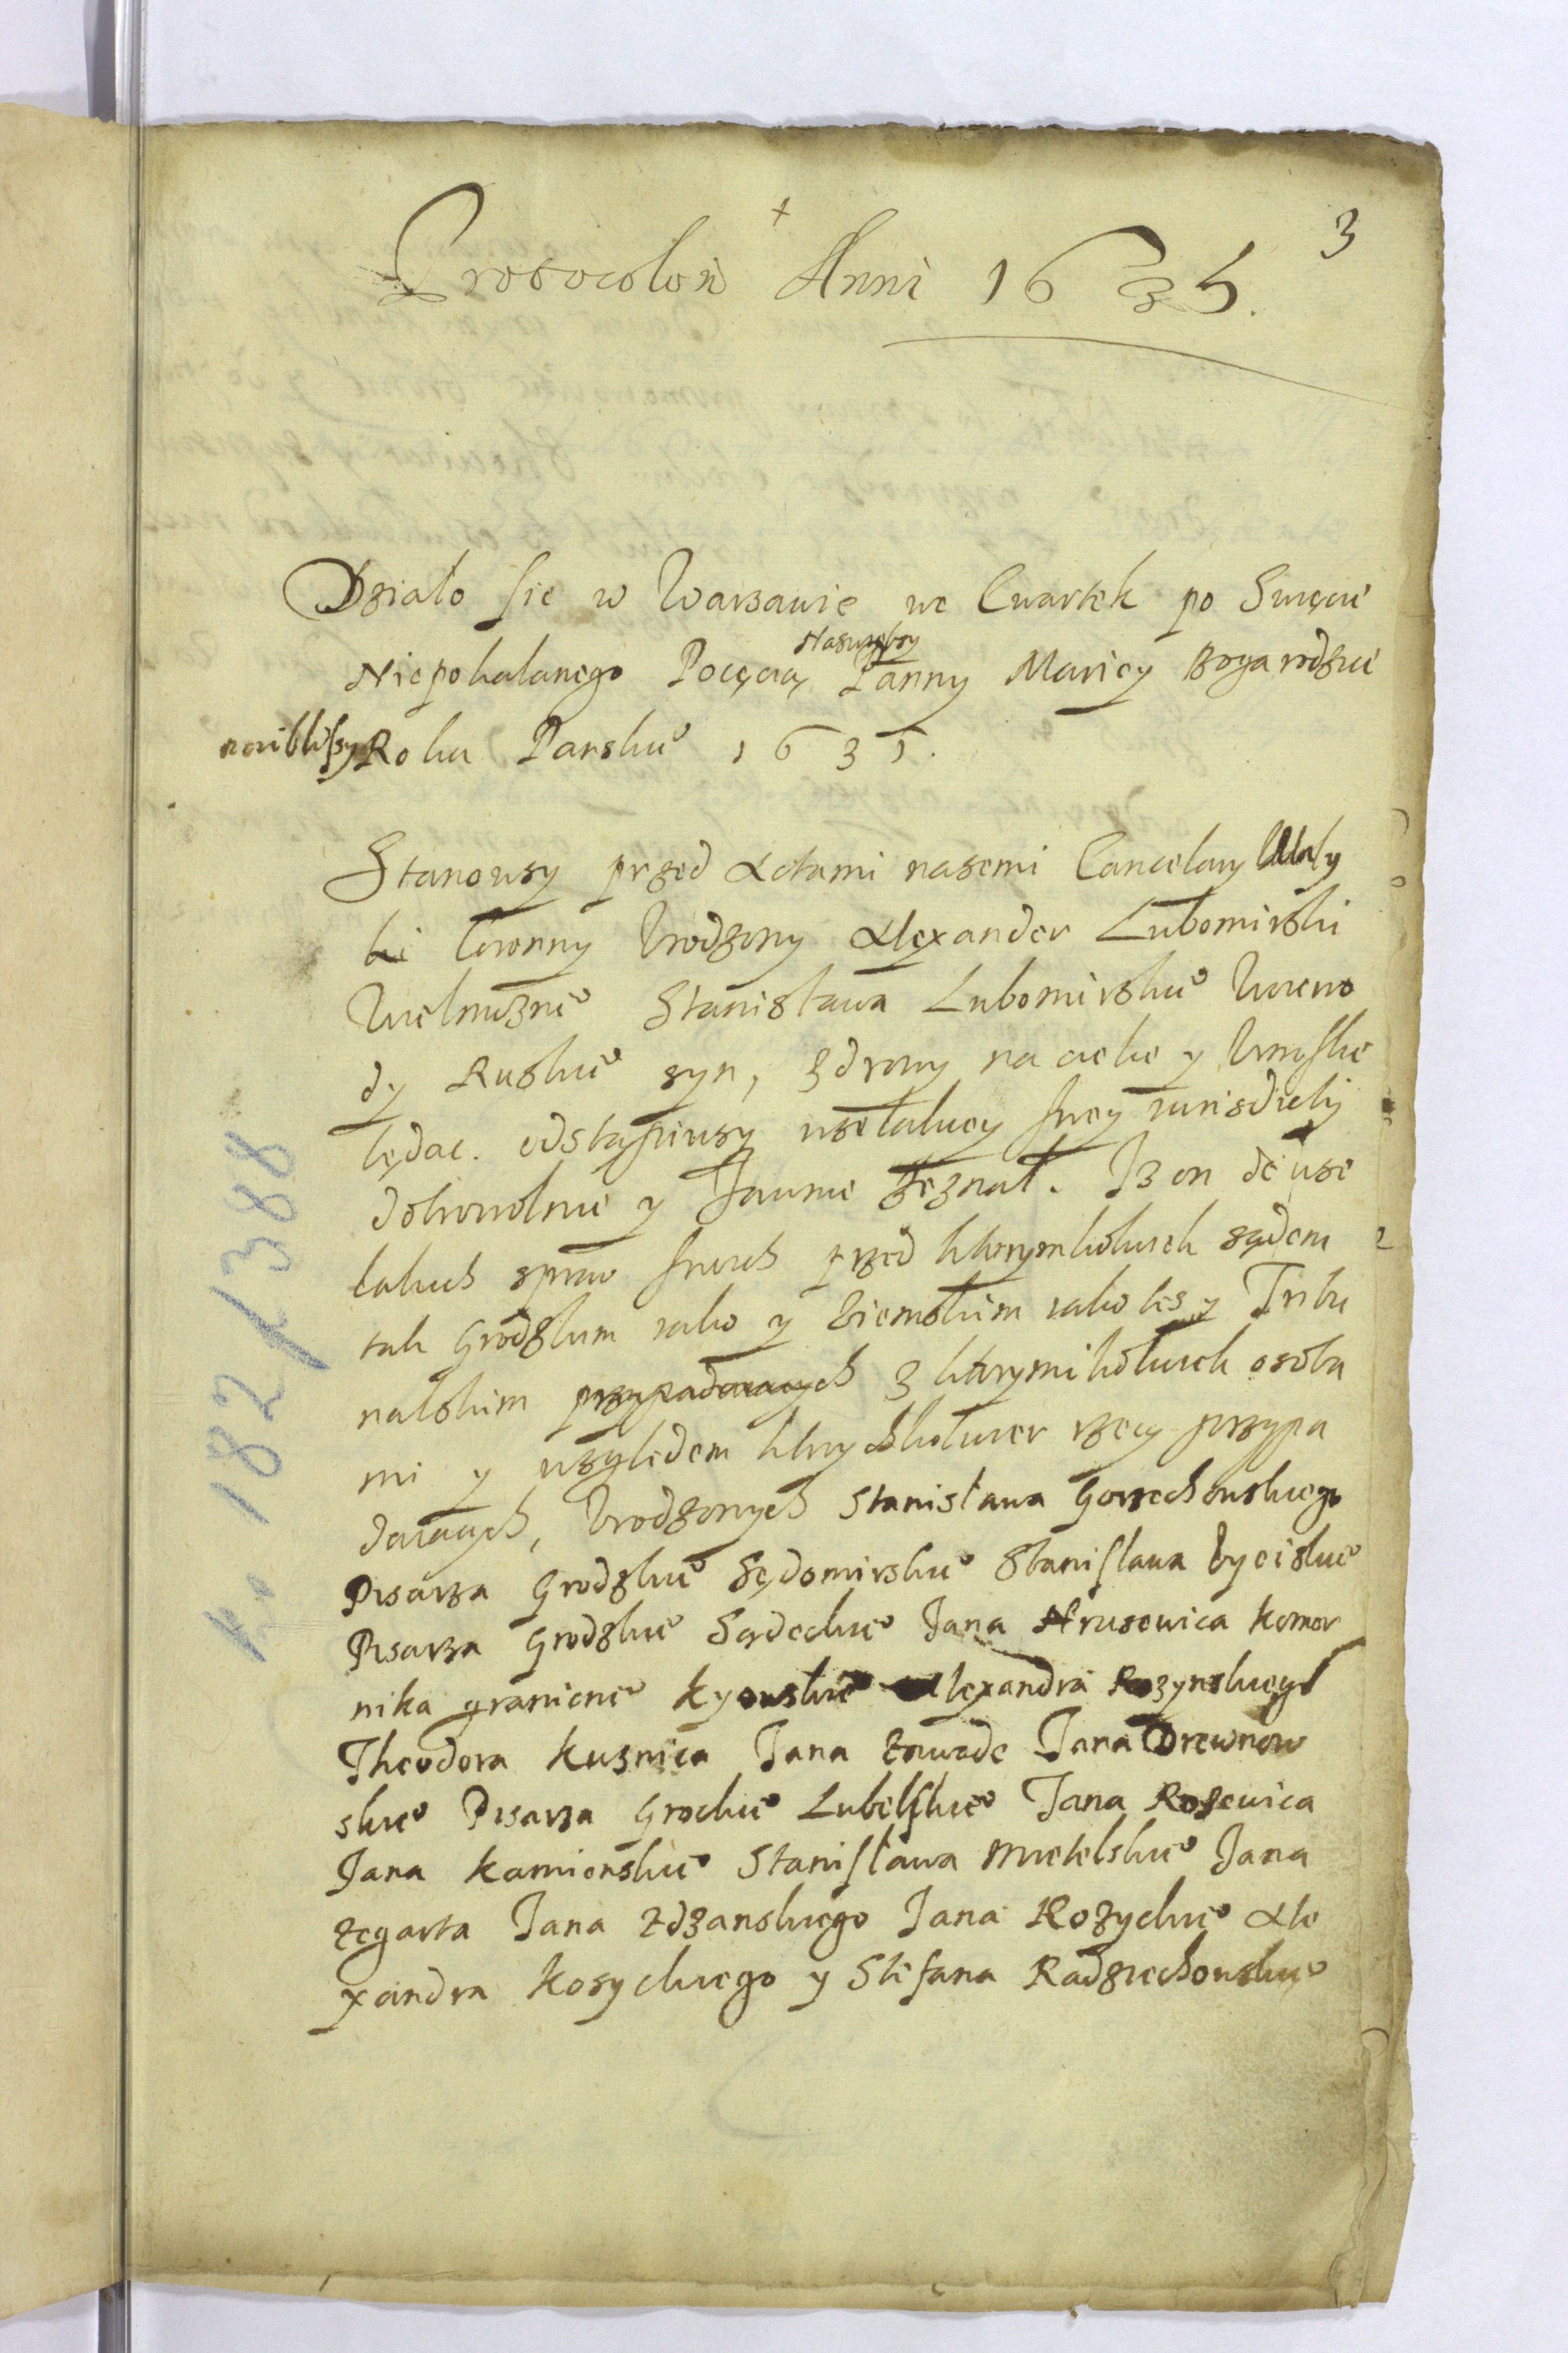 3
Protocolon Anni 1635.
Działo się w Warszawie we Cwartek po Swięcie
Niepokalanego Poczęcia Naswiętszy Panny Mariey Bogarodzicie
naiblissy Roku Panskie° 1635.
Stanowsy przed Actami nasemi Cancelary
ki Coronny Urodzony Alexander Lubomirski
Wielmoznie° Stanisława Lubomirskie° Woiewo
dy Ruskie° syn, zdrowy na ciele y Umysle
będąc. odstąpiwsy wselakiey swey iurisdictiy
dobrowolnie y Jawnie zeznał. Iz on de wse
lakich spraw swych przed ktorymkolwiek sądem
tak Grodzkim iako y Ziemskim iako tes y Tribu
nalskim przypadaiących z ktorymikolwiek osoba
mi y względem ktorychkolwiek rzecy przypa
daiących, Urodzonych Stanisława Gorzechowskiego
Pisarza Grodzkie° Sędomirskie° Stanisława
Pisarza Grodzkie° Sądeckie° Jana Hrusewica Komor
nika granicne° Kyowskie° Alexandra Rozynskiego
Theodora Kuznica Jana Zawade Jana Drewnow
skie° Pisarza Grockie° Lubelskie° Jana Rosewica
Jana Kamienskie° Stanisława Mietelskie° Jana
Zegarta Jana Zdzanskiego Jana Kozyckie° Ale
xandra Kosyckiego y Stefana Radzieckowskie°
K. 182/388